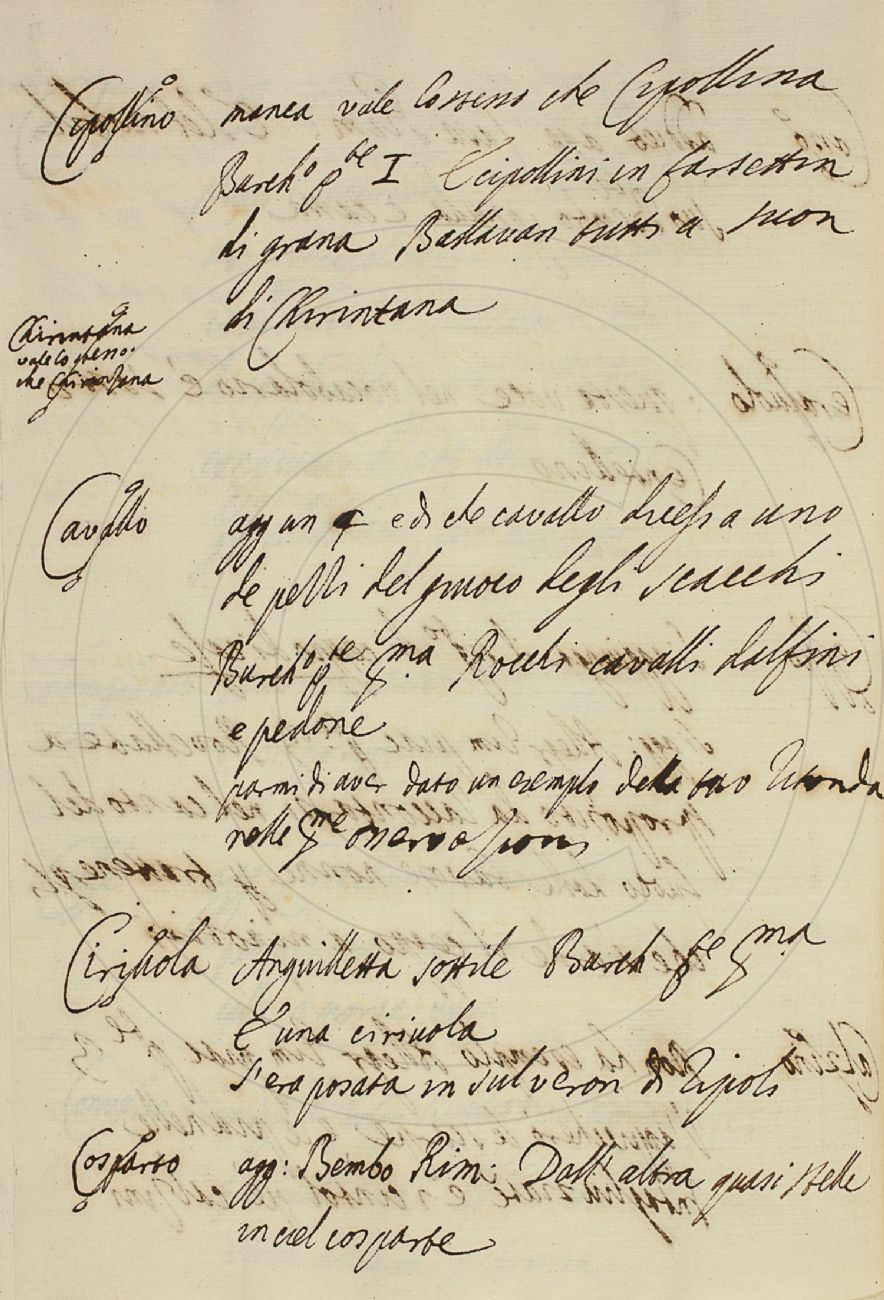 Cipollino manca vale lo stesso che Cipollina
Burch.o p.te I E cipollini in farsettin
di grana Ballavan tutti a suon
di Chirintana
Chirintana
vale lo stesso
che Chirinzana
Cavallo agg un § e di che cavallo dicesi a uno
de pezzi del giuoco degli scacchi
Burch.o p.te p.ma Rocchi cavalli dalfini
e pedone
parmi di aver dato un esempio della tavo ritonda
nelle p.me osservazioni
Ciriuola Anguilletta sottile Burch p.te p.ma
E una ciriuola
S'era posata in sul veron di
Cosparto agg: Bembo Rim: Dall' altra quasi stelle
in ciel cosparte